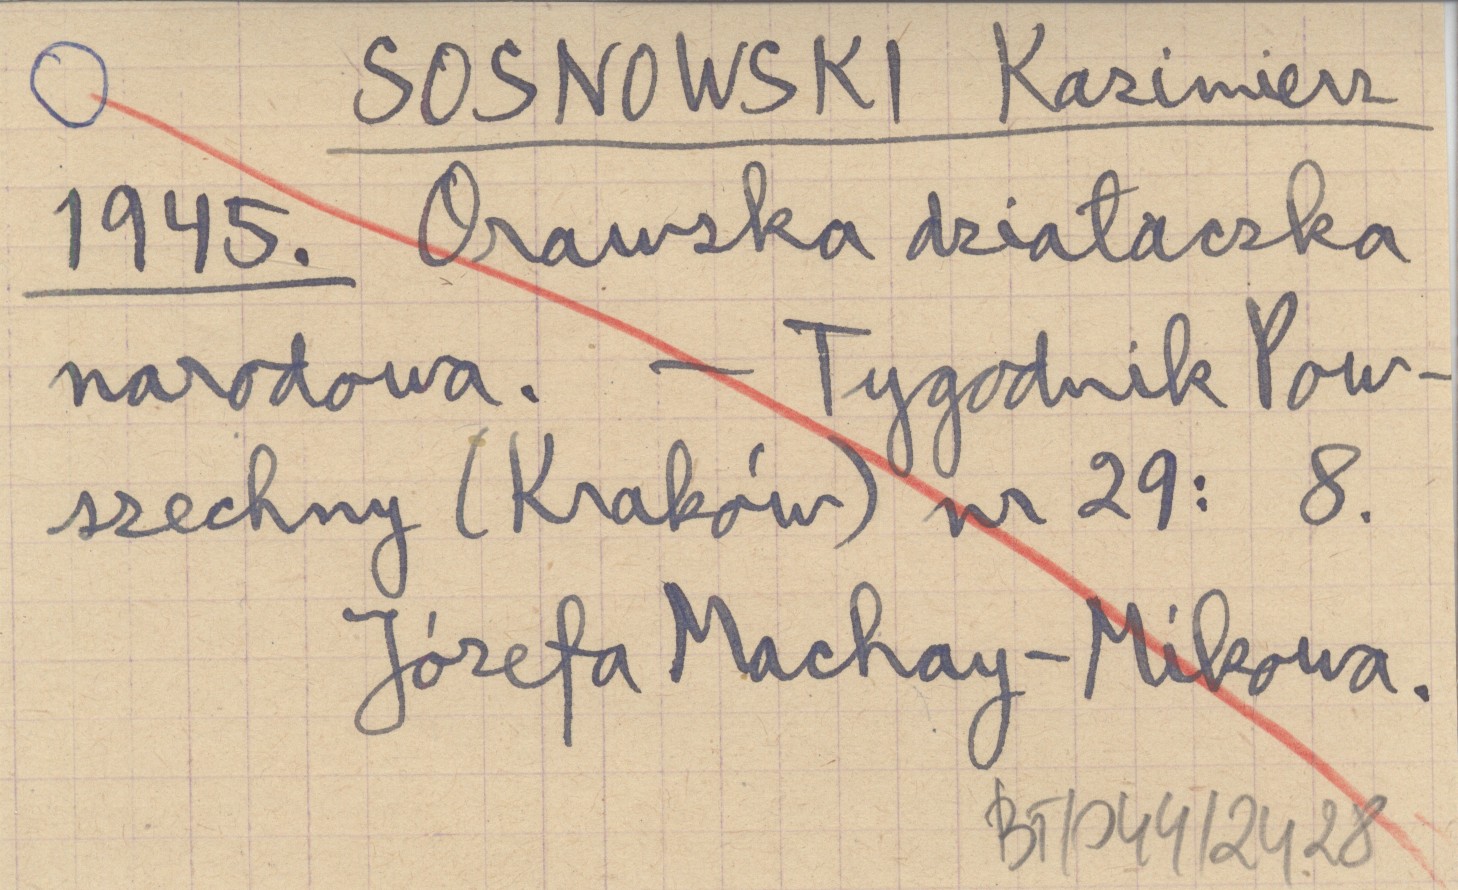 SOSNOWSKI Kazimierz
1945. Orawska działaczka
narodowa. — Tygodnik Pow-
szechny (Kraków) nr 29: 8.
Józefa Machay-Mikowa.
BT/D44/2428